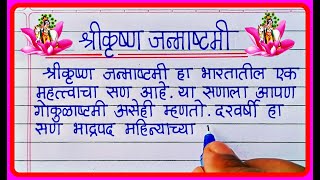 श्रीकृष्ण जन्माष्टमी
श्रीकृष्ण जन्माष्टमी हा भारतातील एक
महत्त्वाचा सण आहे. या सणाला आपण
गोकुळाष्टमी असेही म्हणतो. दरवर्षी हा
सण भाद्रपद महिन्याच्या